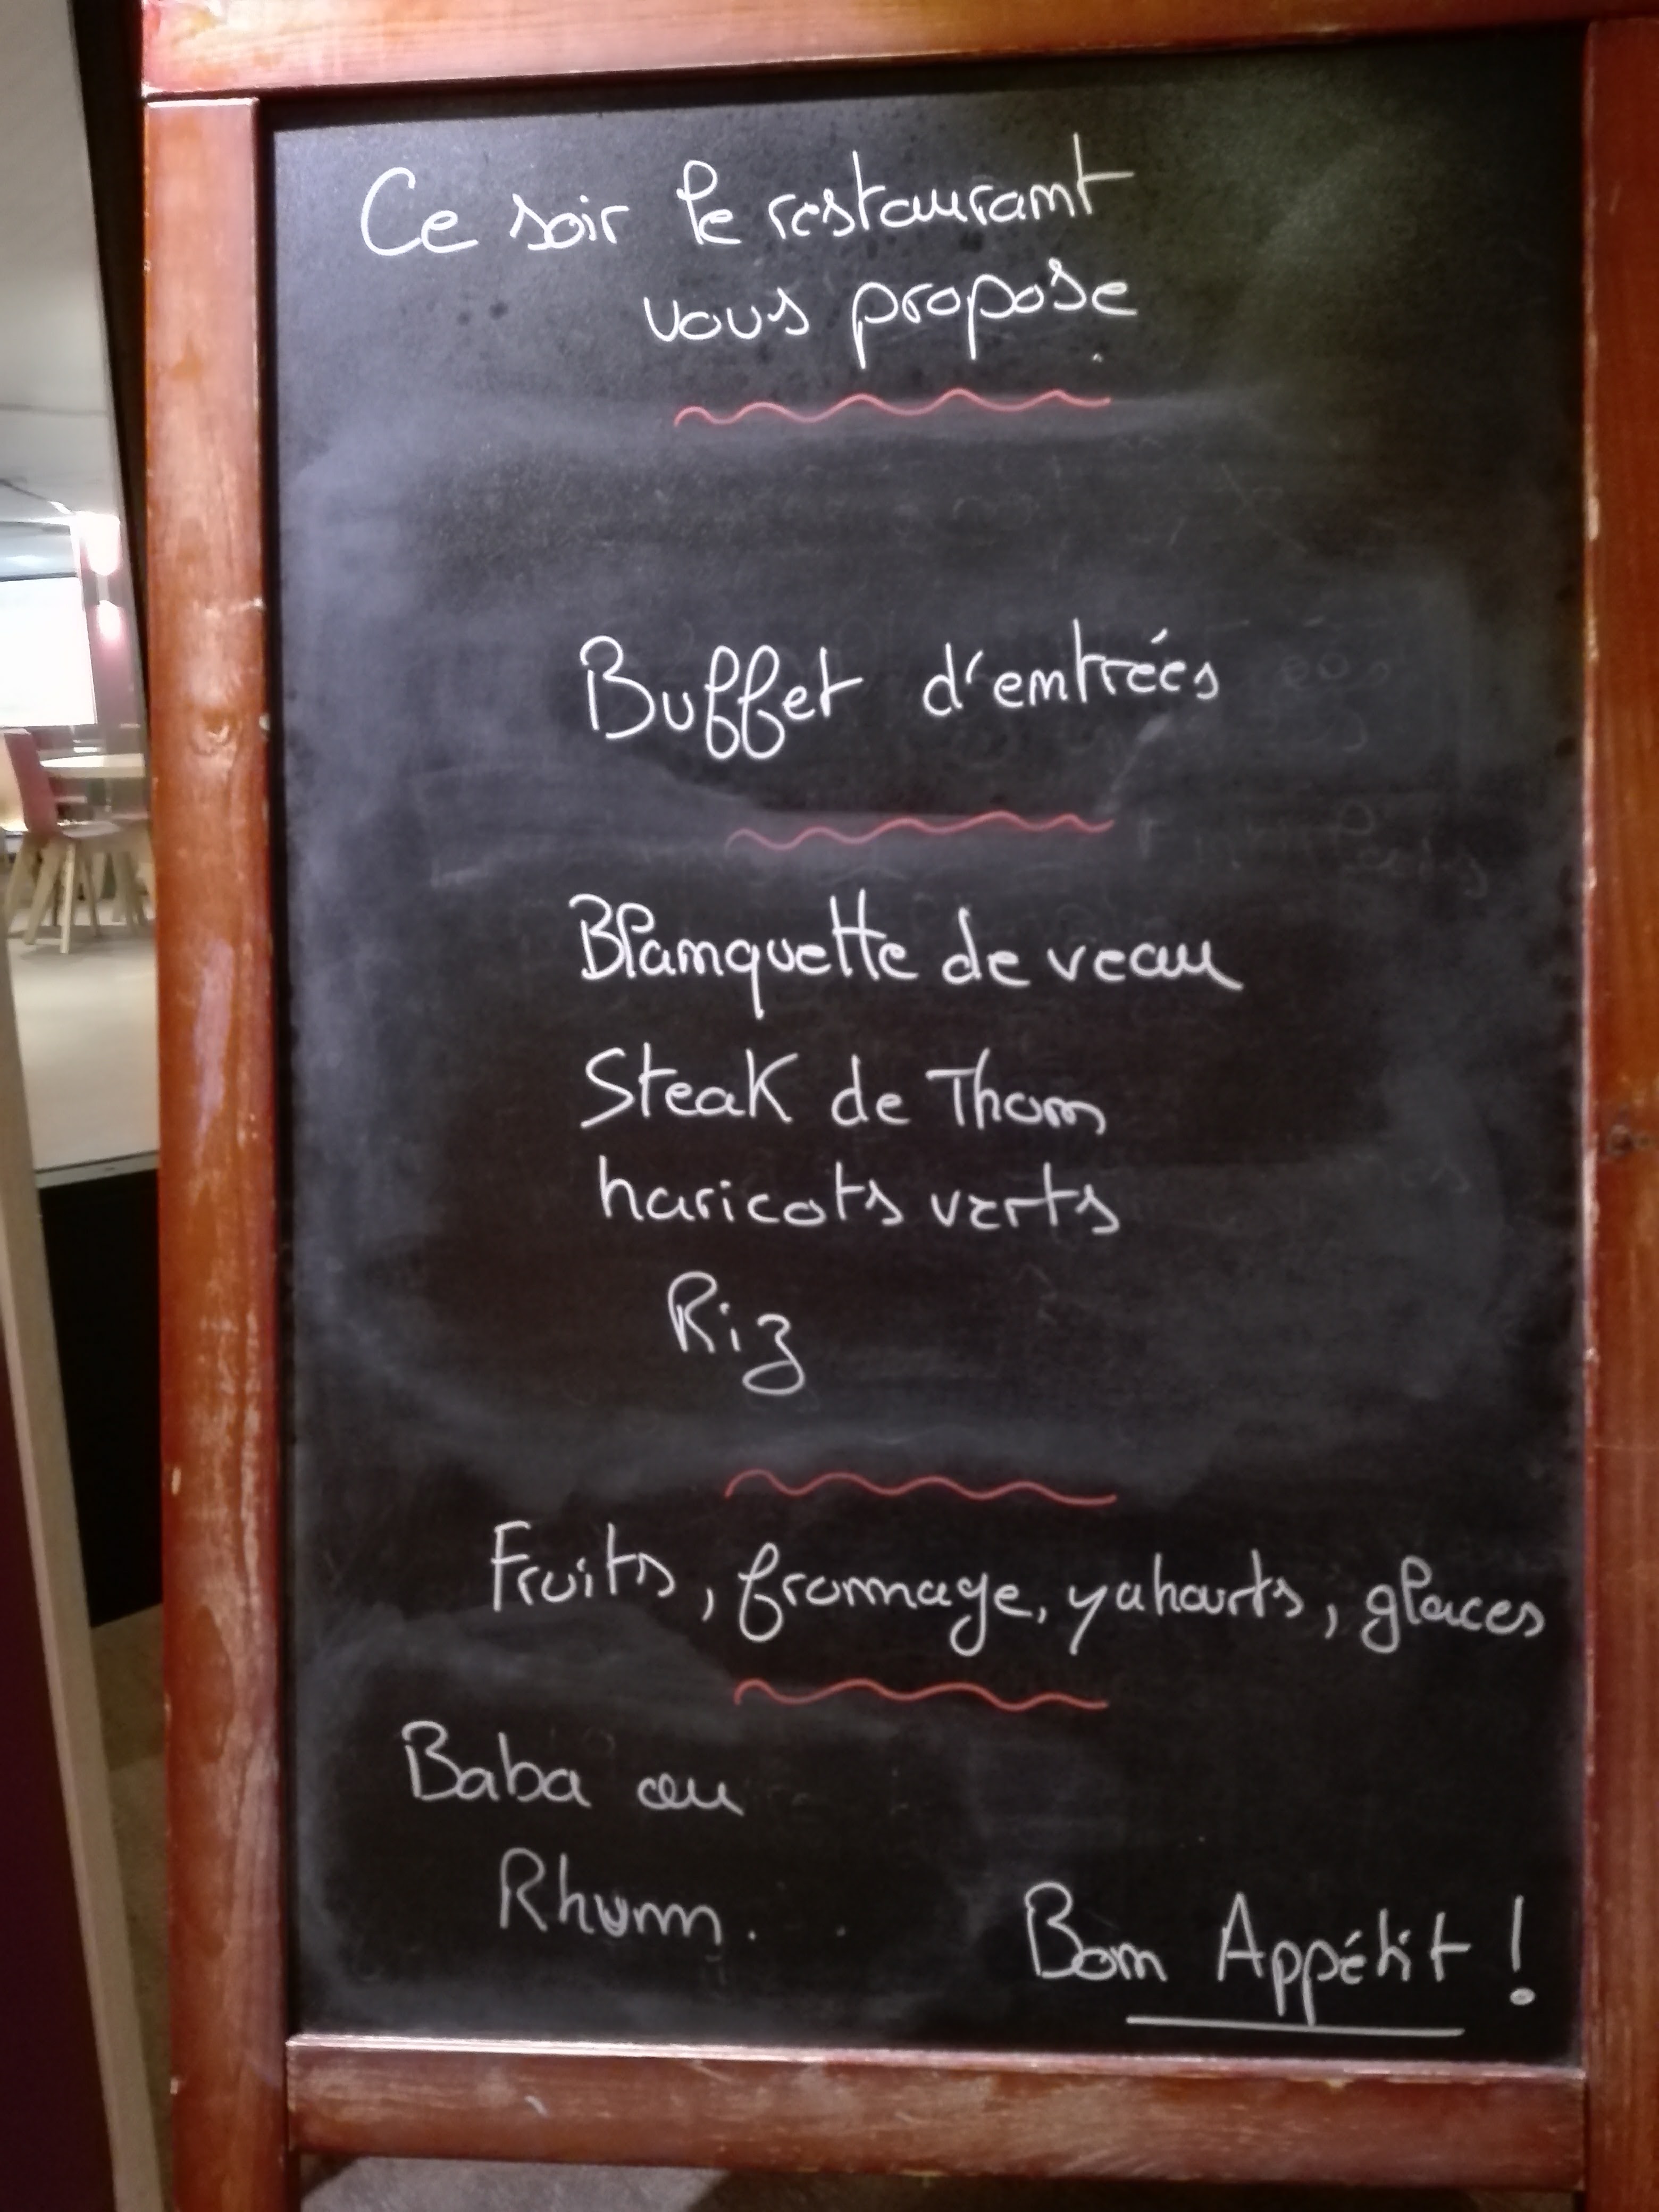 Ce soir le restaurant
vous propose
Buffet d'entrées
Blanquette de veau
Steak de Thon
haricots verts
Riz
Fruits, fromage, yahourts, glaces
Baba au
Rhum.
Bon Appétit !